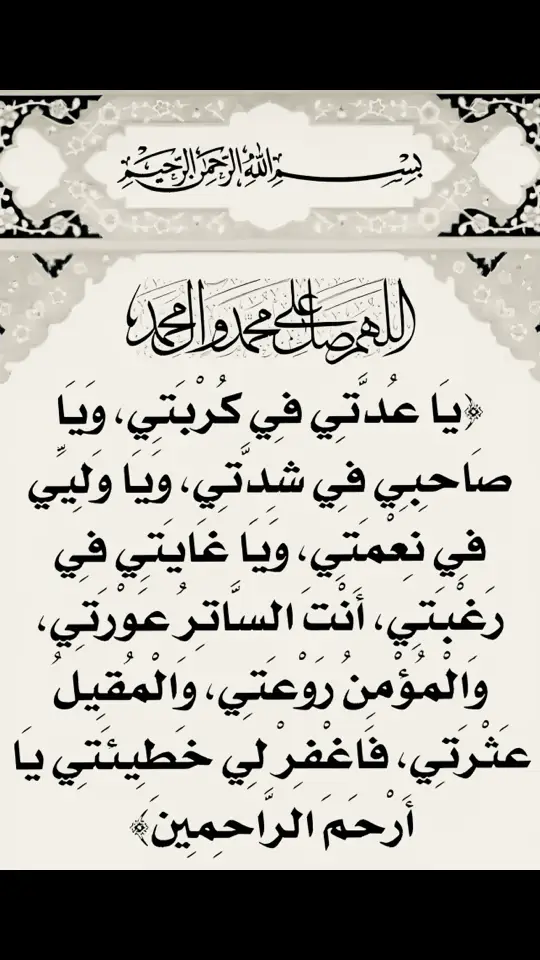 بِسْمِ اللَّهِ الرَّحْمَٰنِ الرَّحِيمِ
اللهم صل على محمد وآل محمد
﴿يَا عُدَّتِي فِي كُرْبَتِي، وَيَا
صَاحِبِي فِي شِدَّتِي، وَيَا وَلِيِّي
فِي نِعْمَتِي، وَيَا غَايَتِي فِي
رَغْبَتِي، أَنْتَ السَّاتِرُ عَوْرَتِي،
وَالْمُؤْمِنُ رَوْعَتِي، وَالْمُقِيلُ
عَثْرَتِي، فَاغْفِرْ لِي خَطِيئَتِي يَا
أَرْحَمَ الرَّاحِمِينَ﴾